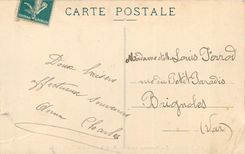 CARTE POSTALE
Doux baisers
affectueux souvenirs
Charles
Louis Ferrod
rue du Petit Paradis
Brignoles
(Var)